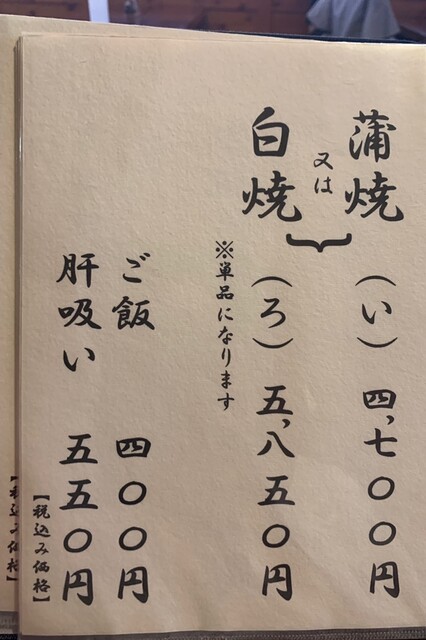 蒲焼
又は
白焼
(い) 四、七〇〇円
(ろ) 五、八五〇円
※単品になります
ご飯 四〇〇円
肝吸い 五五〇円
【税込み価格】
【税込み価格】